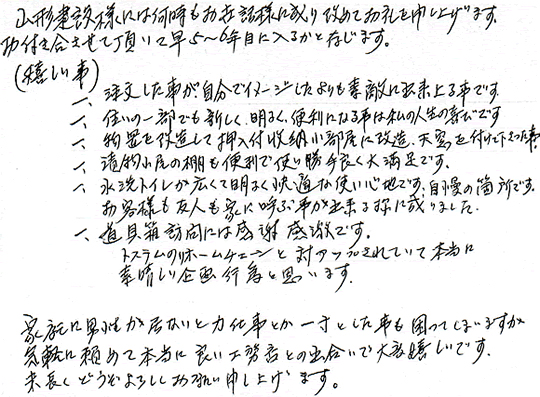 山形建設様には何時もお世話様に成り改めてお礼を申し上げます。
お付き合させて頂いて早5〜6年目に入るかと存じます。
(嬉しい事)
一、注文した事が自分でイメージしたよりも素敵に出来上る事です
一、住いの一部でも新しく、明るく、便利になる事は私の人生の喜びです
一、物置を改造して押入付収納小部屋に改造、天窓を付けて下さった事
一、漬物小屋の棚も便利で使い勝手良く大満足です。
一、水洗トイレが広くて明るく快適な使い心地です、自慢の箇所です。
お客様も友人も家に呼ぶ事が出来る様に成りました。
一、道具箱訪問には感謝感激です。
トステムのリホームチェーンと タイアップされていて本当に
素晴しい企画行為と思います。
家族に男性が居ないと力仕事とか一寸とした事も困ってしまいますが
気軽に頼めて本当に良い工務店との出合いで大変嬉しいです。
末長くどうぞよろしくお願い申し上げます。